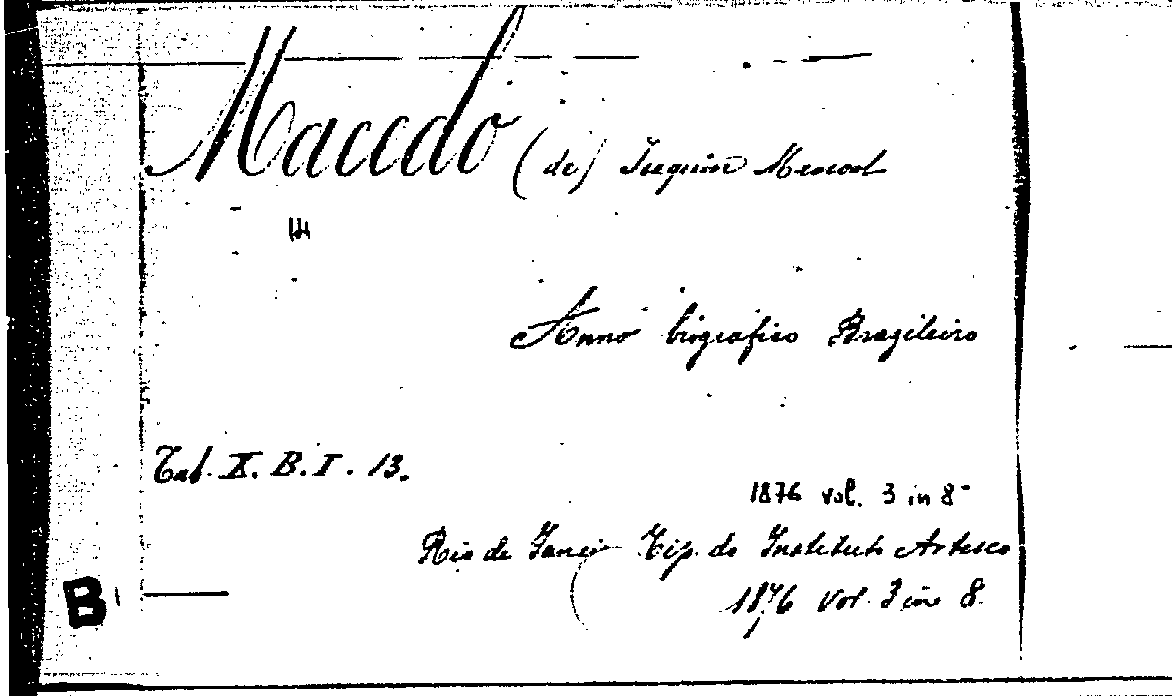 Macedo (de) Joaquim Manoel
Anno biografico Brasileiro
Tab. X. B. I. 13.
1876 vol. 3 in 8°
Rio de Janeiro Tip. do Instituto Artisco
1876 vol. 3 in 8.
B